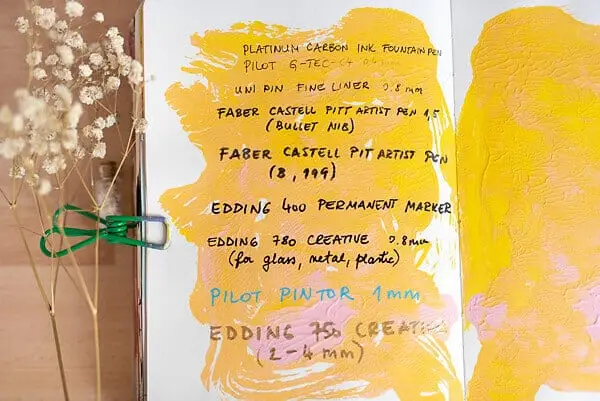 PLATINUM CARBON INK FOUNTAIN PEN
PILOT G-TEC-C4
UNI PIN FINE LINER 0.8 mm
FABER CASTELL PITT ARTIST PEN 1,5
(BULLET NIB)
FABER CASTELL PIT ARTIST PEN
(B, 199)
EDDING 400 PERMANENT MARKER
EDDING 780 CREATIVE 0.8mm
(for glass, metal, plastic)
PILOT PINTOR 1mm
EDDING 750 CREATIVE
(2-4mm)